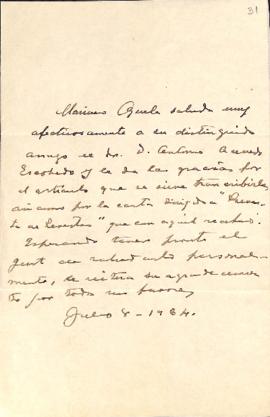 31
Mariano Azuela saluda muy
afectuosamente a su distinguido
amigo el Sr. D. Antonio Acevedo
Escobedo y le da las gracias por
el artículo que se sirve transcribirle,
así como por la carta dirigida a
de Revistas" que con aquél recibió.
Esperando tener pronto el
gust de saludarlo personal-
mente, le reitera su agradecimien
to por todos sus favores
Julio 8 - 1934.